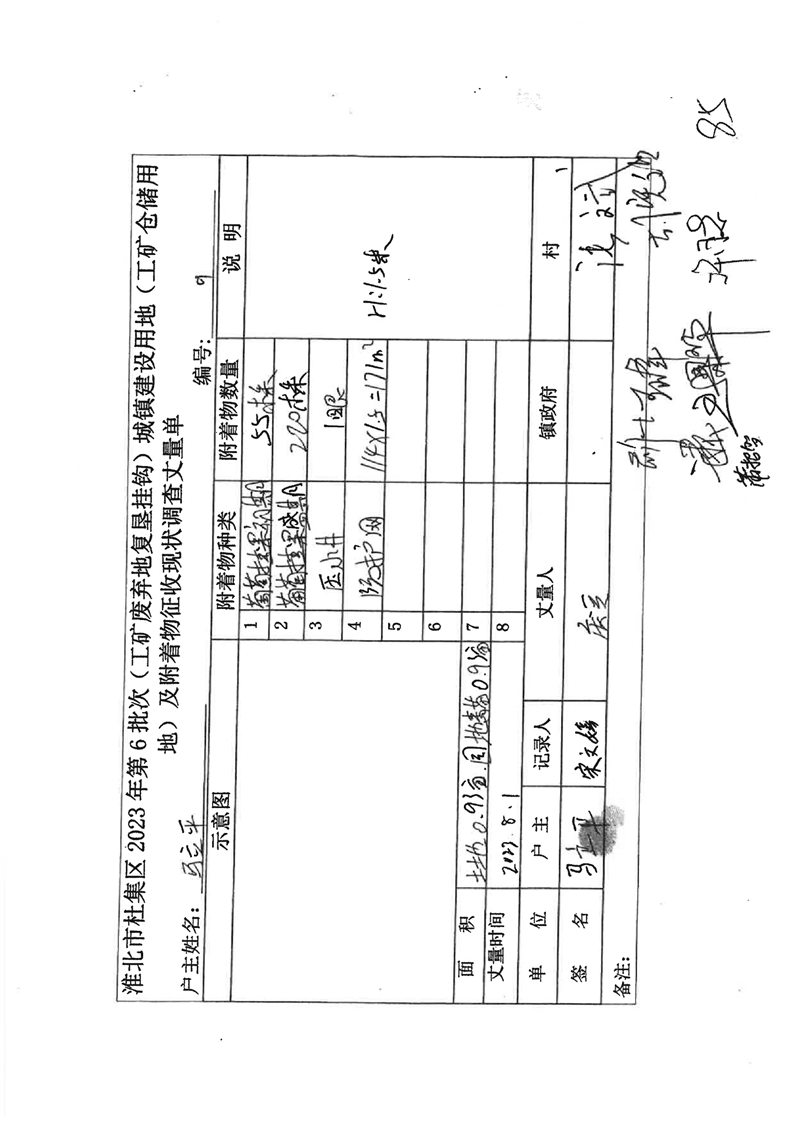 淮北市杜集区 2023 年第 6 批次（工矿废弃地复垦挂钩）城镇建设用地（工矿仓储用
地）及附着物征收现状调查丈量单
户主姓名：马立平 编号：9
示意图 附着物种类 附着物数量 说 明
1 葡萄挂果初期 55株
2 葡萄挂果盛期 220株
3 压水井 1眼
4 防护网 114×1.5=171m²
5
6
面 积 土地0.93亩 7
丈量时间 2023.8.1 8
单 位 户 主 记录人 丈量人 镇政府 村
签 名 马立平 宋文娟
备注：
85